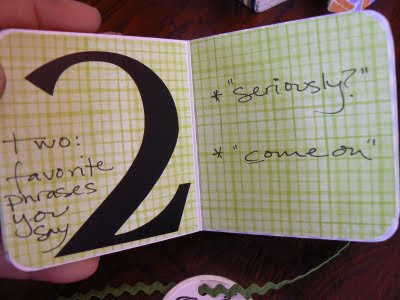 2
two:
favorite
phrases
you
say
* "seriously?"
* "come on"